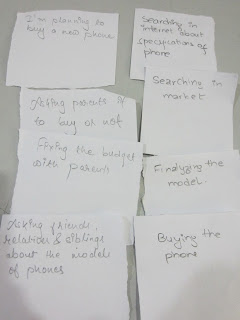 I'm planning to
buy a new phone
Asking parents if
to buy or not
Fixing the budget
with parents
Asking friends,
relatives & siblings
about the models
of phones
Searching in
internet about
specifications of
phone
Searching in
market
Finalizing the
model.
Buying the
phone